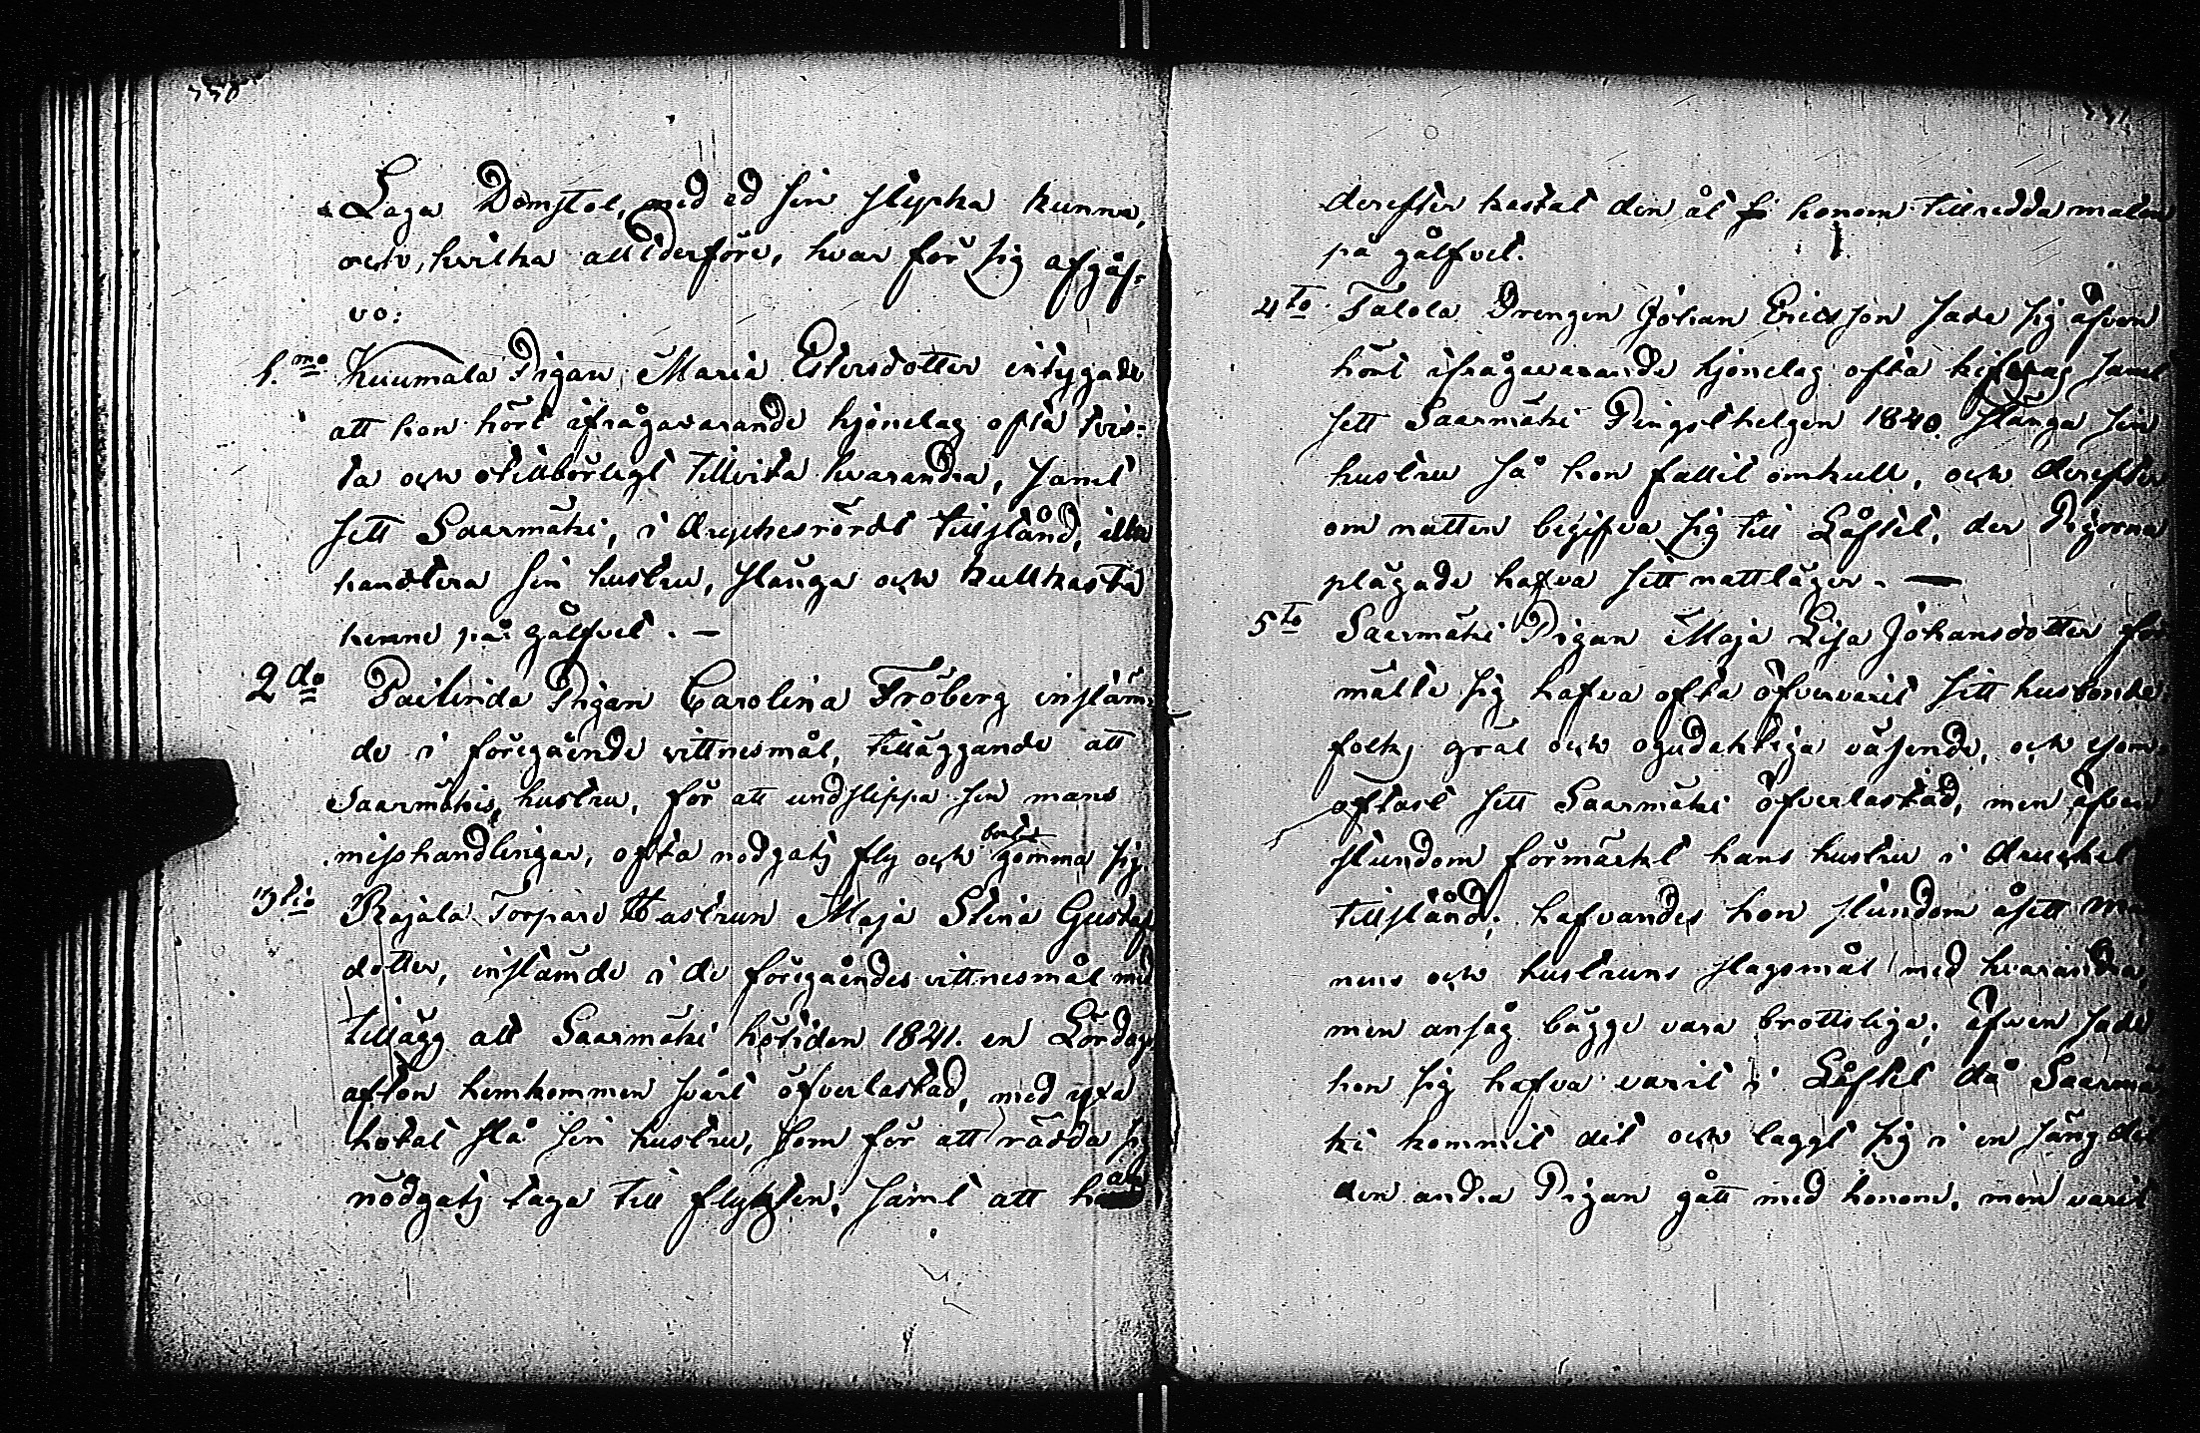 Laga Domstol, med ed sin styrka kunna,
och, hvilka alltderföre, hvar för sig afgåf=
vo:
1.mo Kuumala Pigan, Maria Estersdotter intygade
att hon hört ifrågavarande hjonelag ofta tvis=
ta och otillbörligt tillvita hvarandra, samt
sett Saarmäki, i dryckesrördt tillstånd, illa
handtera sin hustru, slänga och kullkasta
henne på gålfvet. —
2do Pailinda Pigan Carolina Fröberg instäm=
de i föregående vittnesmål, tilläggande att
Saarmäkis hustru, för att undslippa sin mans
misshandlingar, ofta nödgats fly och bort gömma sig.
3tio Rajala Torpare Hustrun Maja Stina Gustafs
dotter, instämde i de föregåendes vittnesmål med
tillägg att Saarmäki hötiden 1841. en Lördags
afton hemkommen svårt öfverlastad, med yxa
hotat slå sin hustru, som för att rädda sig
nödgats taga till flykten, samt att han
derefter kastat den åt honom tillredda maten
på gålfvet.
4to Talola Drengen Johan Ericsson sade sig äfven
hört ifrågavarande hjonelag ofta kifvas samt
sett Saarmäki Pingsthelgen 1840. slänga sin
hustru så hon fallit omkull, och derefter
om natten begifva sig till Låftet, der Pigorna
plägade hafva sitt nattläger. —
5to Saarmäki Pigan Maja Lisa Johansdotter för
mälte sig hafva ofta öfvervarit sitt husbonde
folks gräl och ogudaktiga väsende, och som
oftast sett Saarmäki öfverlastad, men äfven
stundom förmärkt hans hustru i drucket
tillstånd; hafvandes hon stundom åsett man
nens och hustruns slagsmål med hvarandra,
men ansåg bägge vara brottsliga; äfven sade
hon sig hafva varit i Låftet då Saarmä
ki kommit dit och laggt sig i en säng dit
den andra Pigan gått med honom, men varit